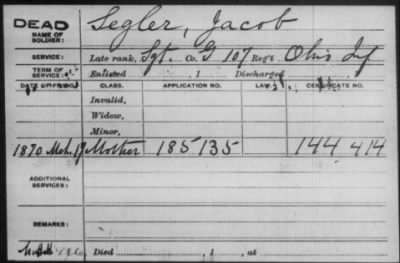 DEAD
NAME OF SOLDIER: Segler, Jacob
SERVICE: Late rank, Sgt. Co. G 107 Reg't Ohio Inf
TERM OF SERVICE: Enlisted , 1 Discharged
DATE OF FILING. CLASS. APPLICATION NO. LAW. CERTIFICATE NO.
Invalid,
Widow,
Minor,
1870 Mch. 19 Mother 185135 144414
ADDITIONAL SERVICES:
REMARKS:
Died , 1 , at